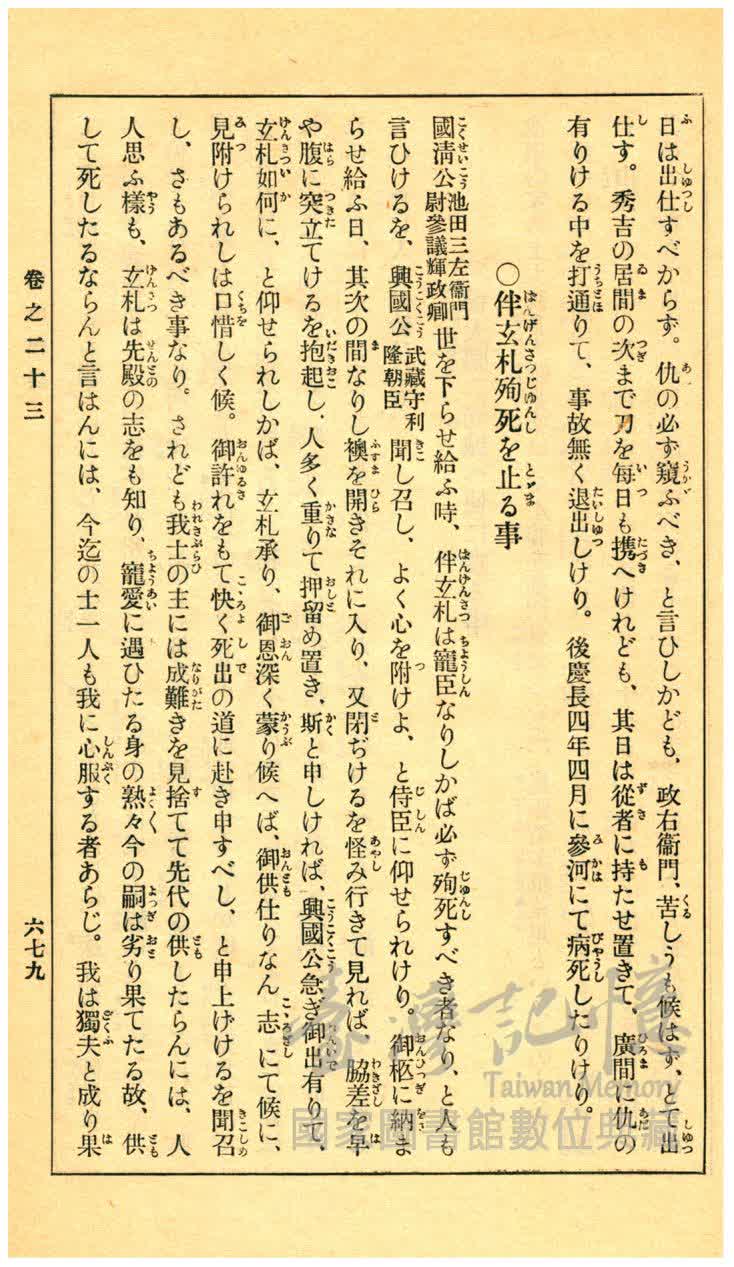 日は出仕すべからず。仇の必ず窺ふべき、と言ひしかども、政右衞門、苦しうも候はず、とて出
仕す。秀吉の居間の次まで刀を每日も携へけれども、其日は從者に持たせ置きて、廣間に仇の
有りける中を打通りて、事故無く退出しけり。後慶長四年四月に參河にて病死したりけり。
〇伴玄札殉死を止る事
國淸公池田三左衞門尉參議輝政卿世を下らせ給ふ時、伴玄札は寵臣なりしかば必ず殉死すべき者なり、と人も
言ひけるを、興國公武藏守利隆朝臣聞し召し、よく心を附けよ、と侍臣に仰せられけり。御柩に納ま
らせ給ふ日、其次の間なりし襖を開きそれに入り、又閉ぢけるを怪み行きて見れば、脇差を早
や腹に突立てけるを抱起し、人多く重りて押留め置き、斯と申しければ、興國公急ぎ御出有りて、
玄札如何に、と仰せられしかば、玄札承り、御恩深く蒙り候へば、御供仕りなん志にて候に、
見附けられしは口惜しく候。御許れをもて快く死出の道に赴き申すべし、と申上げけるを聞召
し、さもあるべき事なり。されども我士の主には成難きを見捨てて先代の供したらんには、人
人思ふ樣も、玄札は先殿の志をも知り、寵愛に遇ひたる身の熟々今の嗣は劣り果てたる故、供
して死したるならんと言はんには、今迄の士一人も我に心服する者あらじ。我は獨夫と成り果
卷之二十三
六七九
臺灣記憶
Taiwan Memory
國家圖書館數位典藏